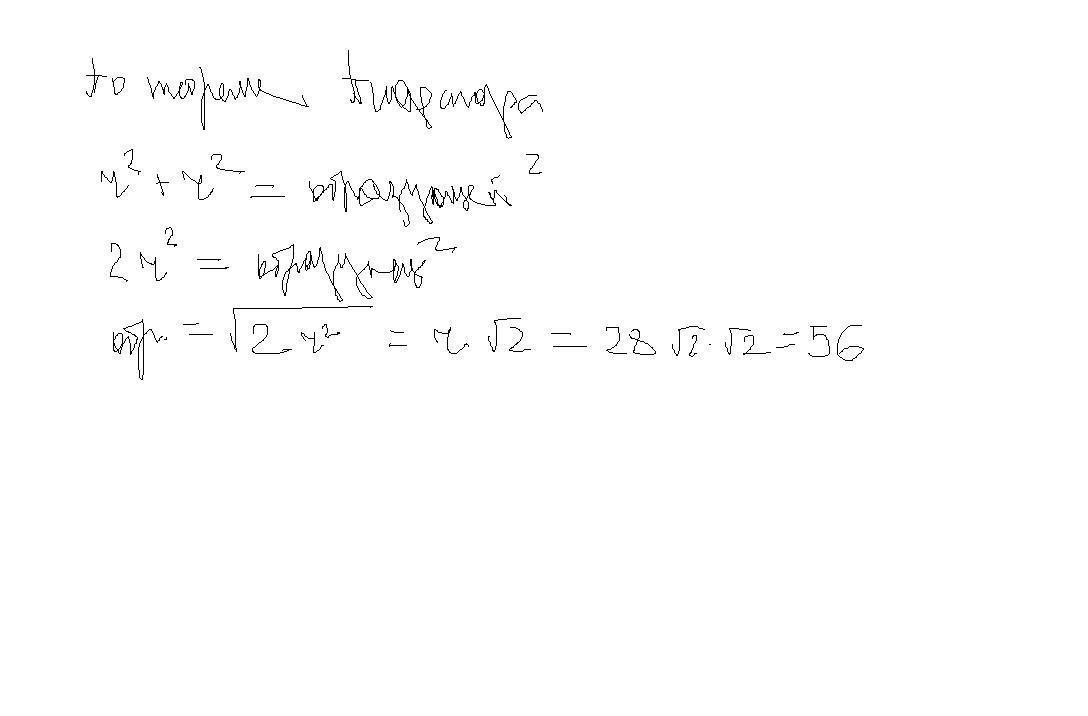 по теореме Пифагора
r² + r² = образующей²
2r² = образующ²
обр. = √(2r²) = r√2 = 28√2·√2 = 56